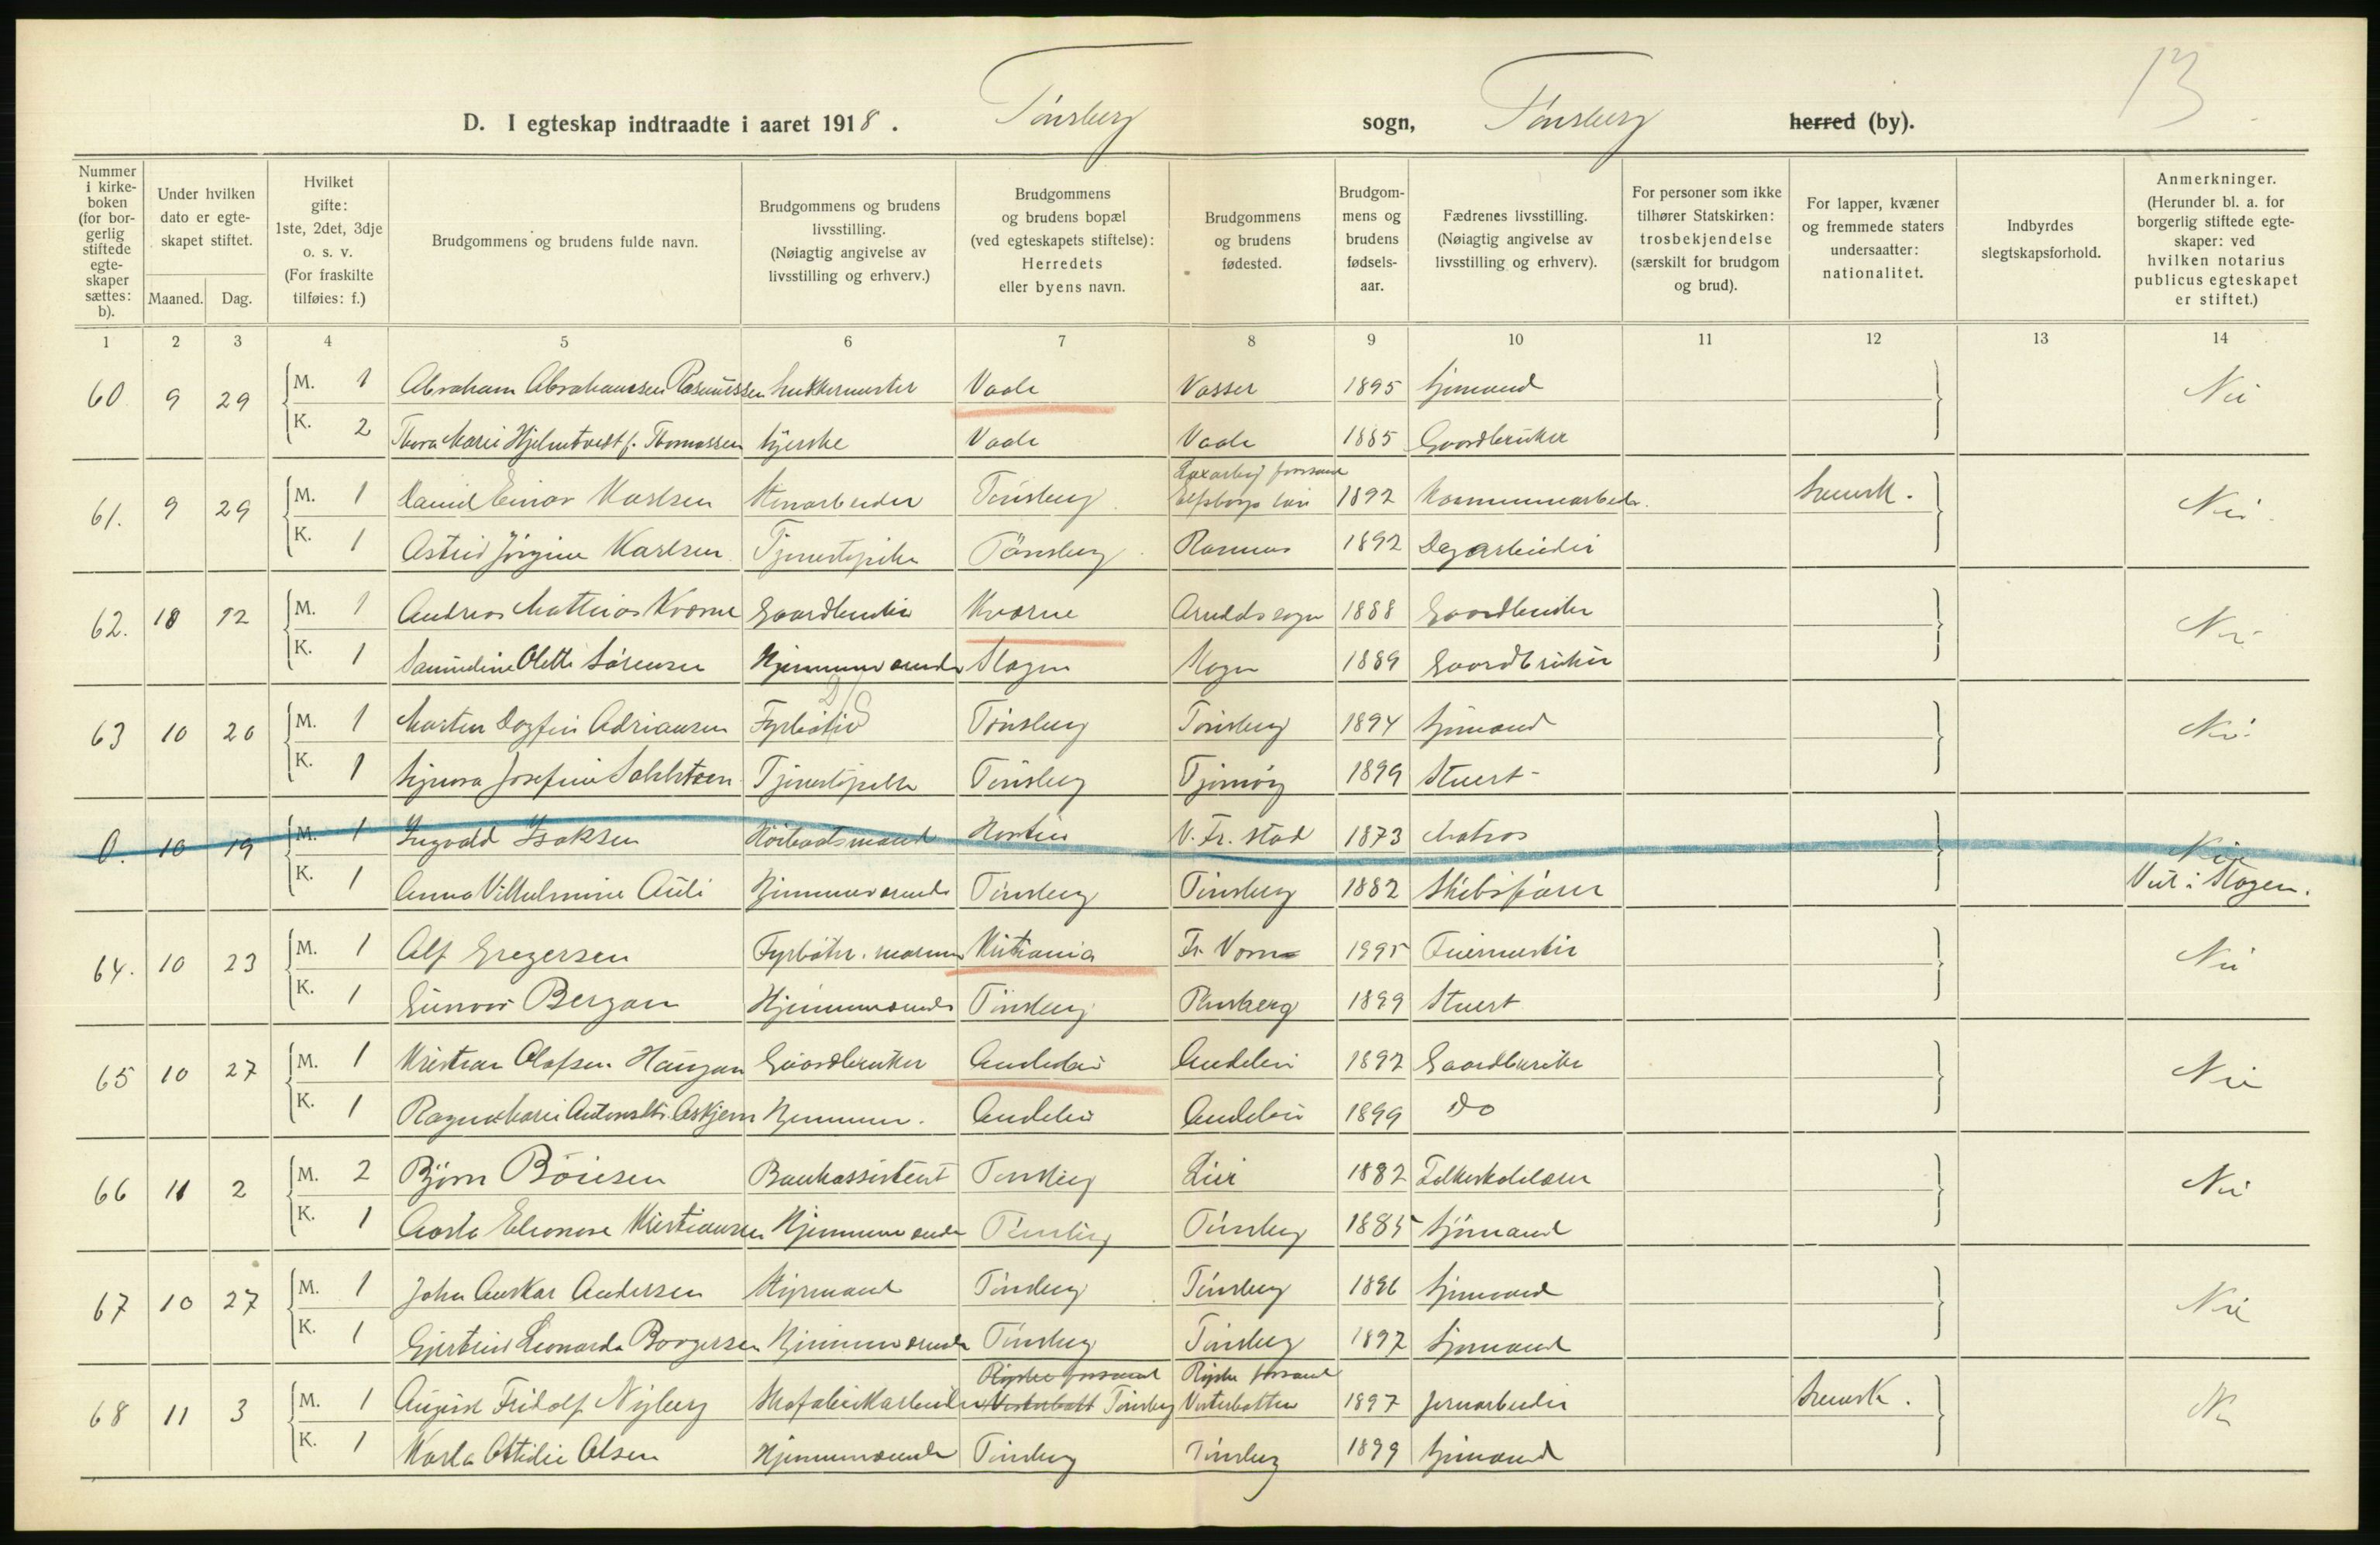 13
D. I egteskap indtraadte i aaret 1918. Tønsberg sogn, Tønsberg herred (by).
Nummer i kirkeboken (for borgerlig stiftede egteskaper sættes: b).
Under hvilken dato er egteskapet stiftet.
Maaned. Dag.
Hvilket gifte: 1ste, 2det, 3dje o. s. v. (For fraskilte tilføies: f.)
Brudgommens og brudens fulde navn.
Brudgommens og brudens livsstilling. (Nøiagtig angivelse av livsstilling og erhverv.)
Brudgommens og brudens bopæl (ved egteskapets stiftelse): Herredets eller byens navn.
Brudgommens og brudens fødested.
Brudgommens og brudens fødselsaar.
Fædrenes livsstilling. (Nøiagtig angivelse av livsstilling og erhverv).
For personer som ikke tilhører Statskirken: trosbekjendelse (særskilt for brudgom og brud).
For lapper, kvæner og fremmede staters undersaatter: nationalitet.
Indbyrdes slegtskapsforhold.
Anmerkninger. (Herunder bl. a. for borgerlig stiftede egteskaper: ved hvilken notarius publicus egteskapet er stiftet.)
1 2 3 4 5 6 7 8 9 10 11 12 13 14
60 9 29 M. 1 Abraham Abrahamsen Rasmussen Vaale Vasser 1895 Sjømand Nei
K. 2 Thora Marie Hjelmtvedt f. Thomassen Syerske Vaale Vaale 1885 Gaardbruker
61. 9 29 M. 1 Daniel Einar Karlsen Stenarbeider Tønsberg Elfsborgs län 1892 Kommunearbeider Svensk. Nei
K. 1 Astrid Jørgine Karlsen Tjenestepike Tønsberg Ramnes 1892 Dagarbeider
62. 10 12 M. 1 Andreas Mathias Kværne Gaardbruker Kværne 1888 Gaardbruker Nei
K. 1 Samueline Olette Sørensen Hjemmeværende Slagen Slagen 1889 Gaardbruker
63 10 20 M. 1 Morten Dagfin Adriansen Fyrbøter Tønsberg Tønsberg 1894 Sjømand Nei
K. 1 Signora Josefine Tjenestepike Tønsberg Tjømø 1899 Stuert
0. 10 19 M. 1 Ingvald Isaksen Horten V. Fr. stad 1873 Matros Nei
K. 1 Anna Vilhelmine Auli Hjemmeværende Tønsberg Tønsberg 1882 Skibsfører Viet i Slagen.
64. 10 23 M. 1 Alf Gregersen Fyrbøter. marinen Kristiania Fr. Værn 1895 Feiermester Nei
K. 1 Gunvor Bergan Hjemmeværende Tønsberg Tønsberg 1899 Stuert
65 10 27 M. 1 Kristian Olafsen Haugan Gaardbruker Andebu Andebu 1892 Gaardbruker Nei
K. 1 Ragna Marie Antonsdtr. Askjem Hjemmev. Andebu Andebu 1899 do
66 11 2 M. 2 Bjørn Böiesen Bankassistent Tønsberg Lier 1882 Folkeskolelærer Nei
K. 1 Aasta Eleonore Kristiansen Hjemmeværende Tønsberg Tønsberg 1885 Sjømand
67 10 27 M. 1 John Anskar Andersen Styrmand Tønsberg Tønsberg 1896 Sjømand Nei
K. 1 Gjertrud Leonarda Borgersen Hjemmeværende Tønsberg Tønsberg 1897 Sjømand
68 11 3 M. 1 August Fridolf Nyberg Skofabrikarbeider Tønsberg Vesterbotten 1897 Jernarbeider Svensk. Nei
K. 1 Karla Ottilie Olsen Hjemmeværende Tønsberg Tønsberg 1899 Sjømand